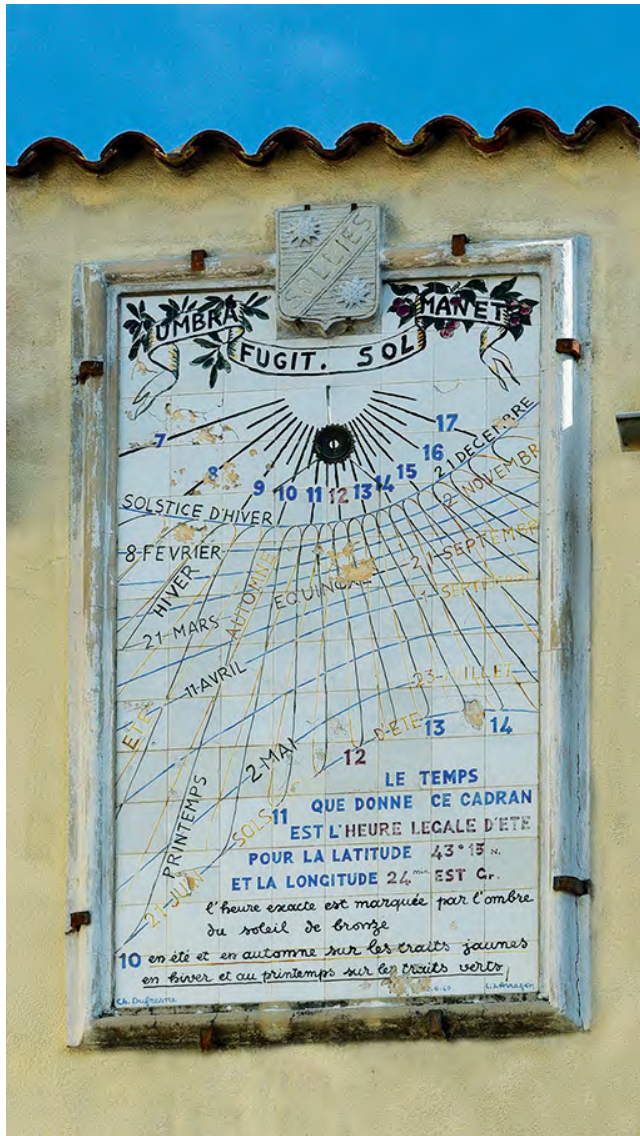 SOLLIES
UMBRA FUGIT. SOL MANET
7 8 9 10 11 12 13 14 15 16 17
SOLSTICE D'HIVER
21 DECEMBRE
8 FÉVRIER
2 NOVEMBR
HIVER
AUTOMNE
EQUINOXE
21-SEPTEMBR
21-MARS
1-SEPTEMBR
11-AVRIL
23-JUILLET
ÉTÉ
2-MAI
D'ÉTÉ
13 14
12
PRINTEMPS
SOLS
21-JUIN
11
LE TEMPS
QUE DONNE CE CADRAN
EST L'HEURE LEGALE D'ETE
POUR LA LATITUDE 43°15 N.
ET LA LONGITUDE 24 min EST Gr.
l'heure exacte est marquée par l'ombre
du soleil de bronze
10 en été et en automne sur les traits jaunes
en hiver et au printemps sur les traits verts
Ch. Dufresne